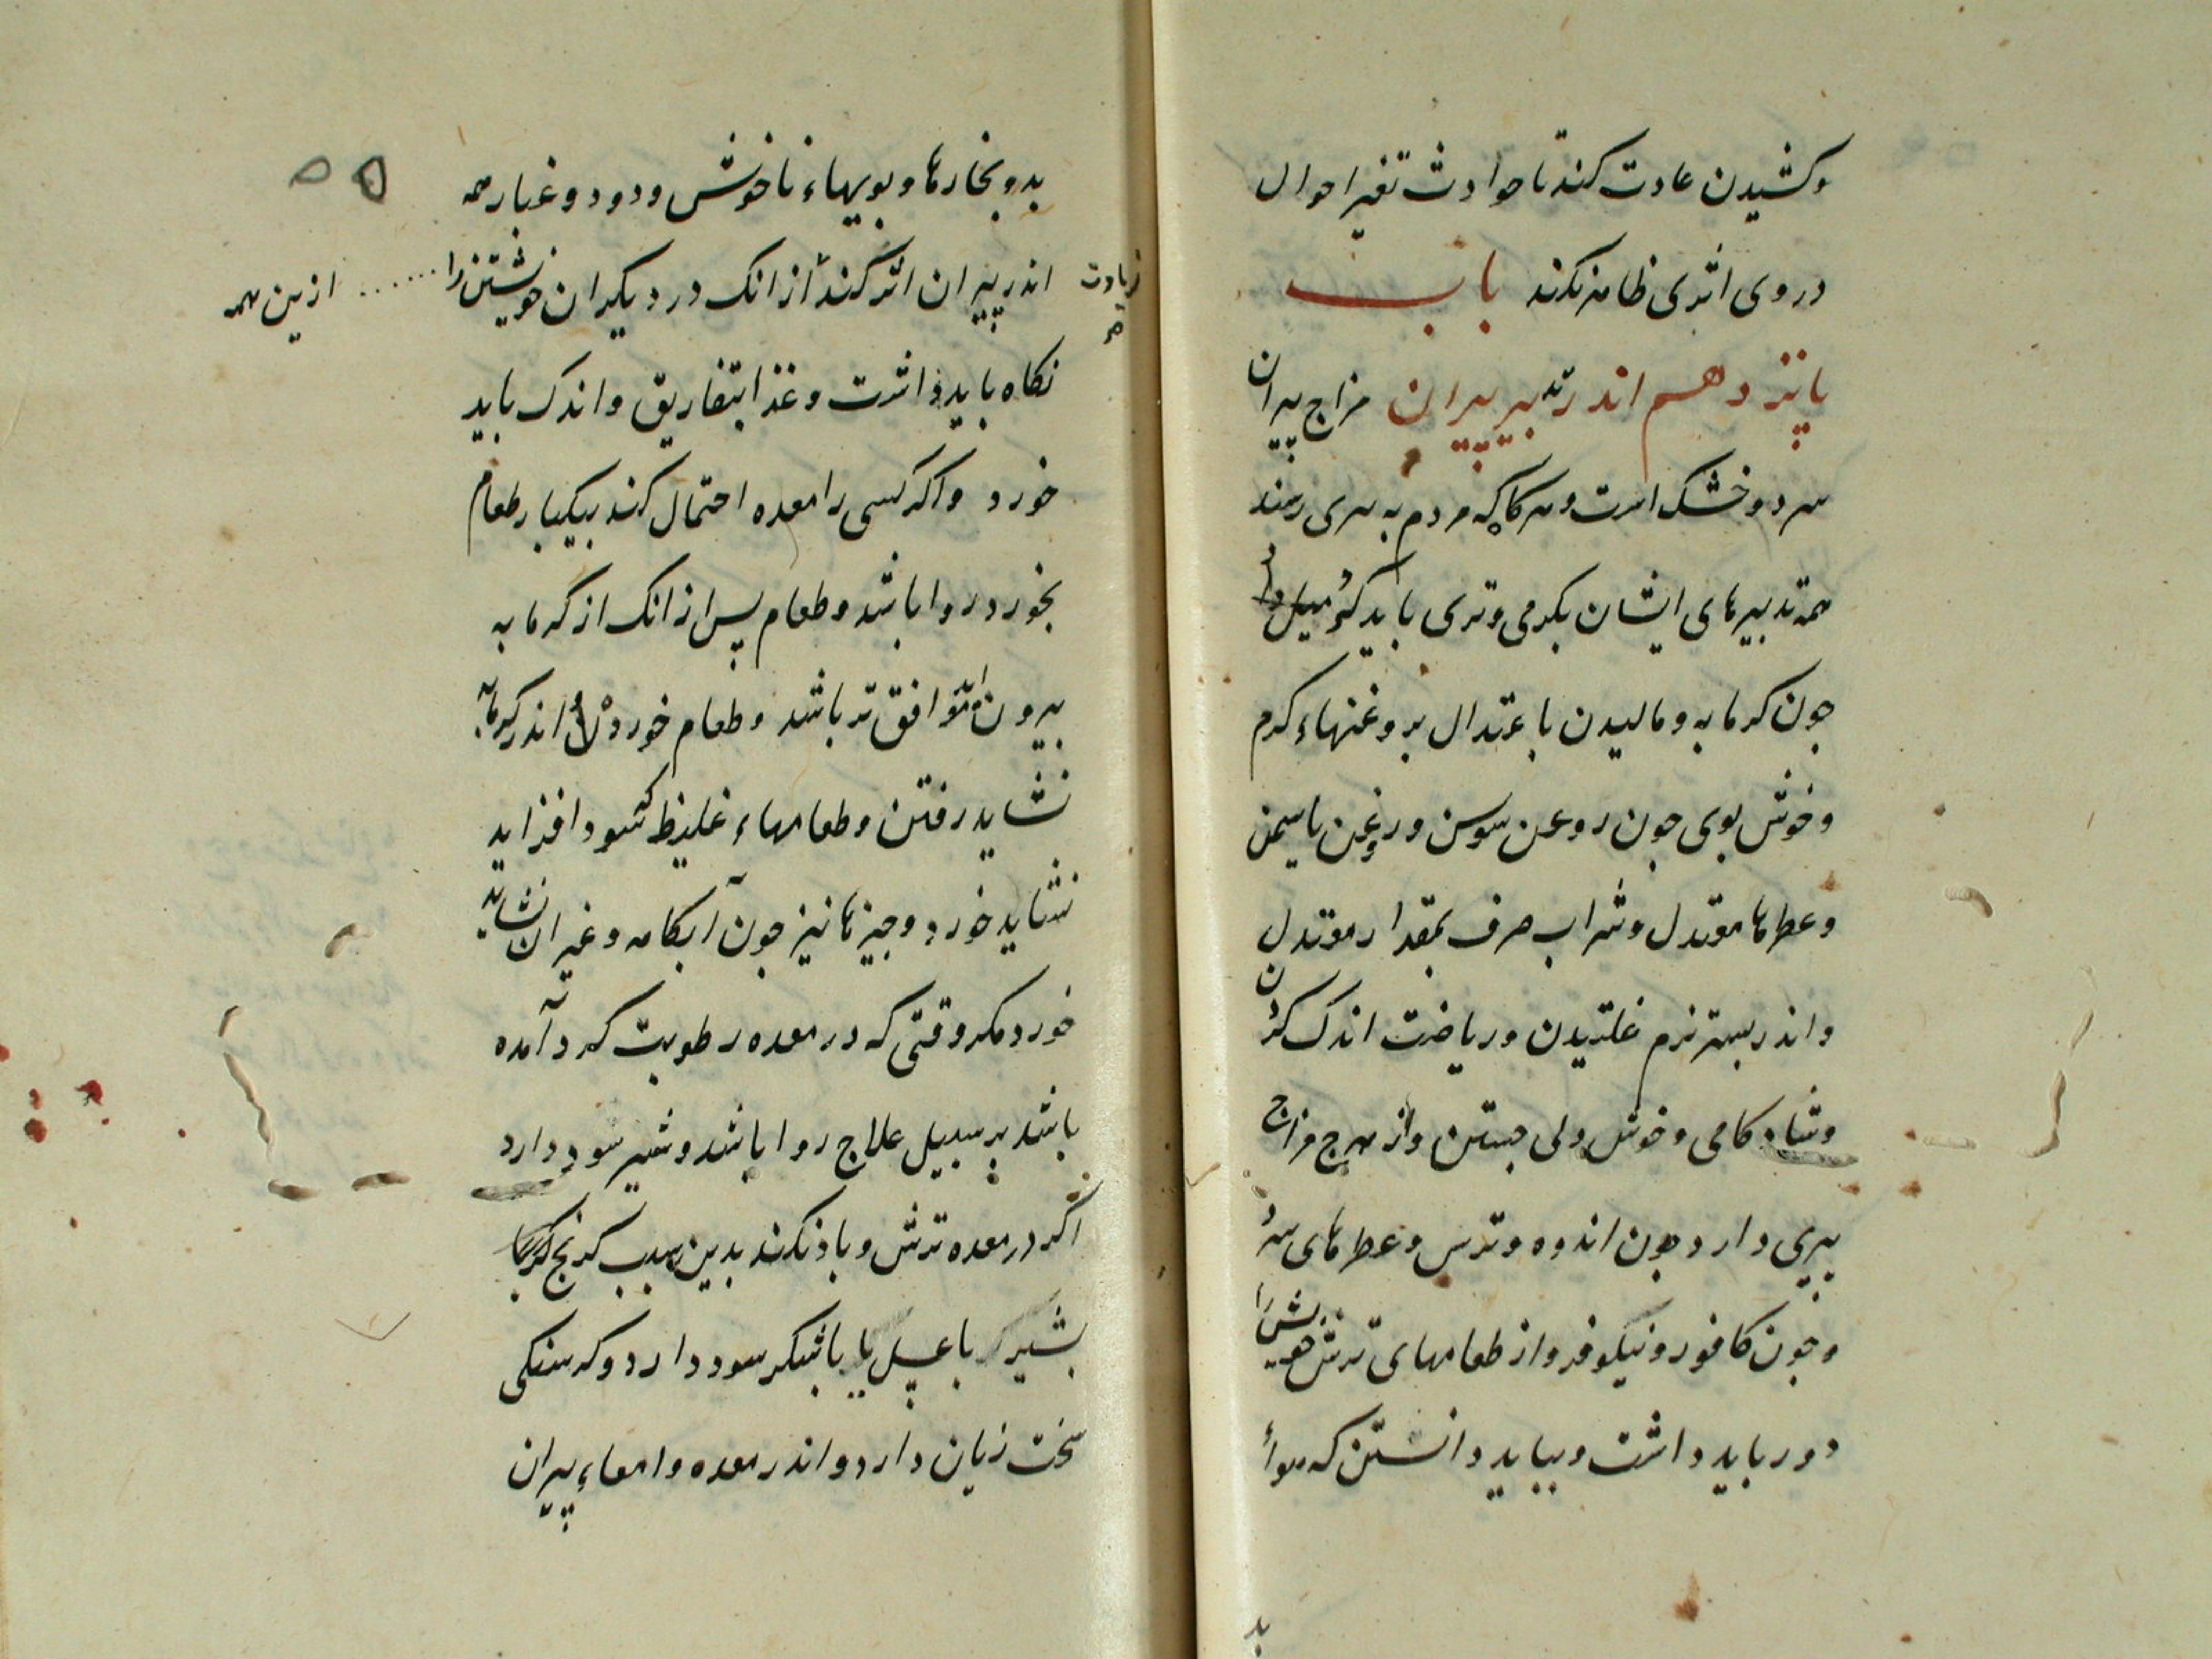 وکشیدن عادت کند تا حوادث تغیر احوال
در وی اثری ظاهر نکند باب
پانزدهم اندر تدبیر پیران مزاج پیران
سرد و خشک است و هرکاه که مردم به پیری رسند
همه تدبیرهای ایشان بکرمی و تری باید کرد
جون کرمابه و مالیدن باعتدال بروغنهاء کرم
و خوش بوی جون روغن سوسن و روغن یاسمن
و عطرها معتدل و شراب صرف بمقدار معتدل
و اندر بستر نرم غلتیدن و ریاضت اندک کردن
و شادکامی و خوش دلی جستن و از هرج مزاج
پیری دارد جون اندوه و ترس و عطرهای سرد
و جون کافور و نیلوفر و از طعامهای ترش خویش را
دور باید داشت و بباید دانستن که هواء
بد
۵۵
بد و بخارها و بویهاء ناخوش و دود و غبار همه
زیادت
اندر پیران اثر کند از انک در دیکران خویشتن را ...... ازین همه
نکاه باید داشت و غذا بتفاریق و اندک باید
خورد و اکر کسی را معده احتمال کند بیکبار طعام
بخورد روا باشد و طعام پس از انک از کرمابه
بیرون آید موافق تر باشد و طعام خورده اندر کرمابه
نشاید رفتن و طعامهاء غلیظ که سودا فزاید
نشاید خورد و جیزها تیز جون آبکامه و غیر ان نشاید
خورد مکر وقتی که در معده رطوبت کرد آمده
باشد بر سبیل علاج روا باشد و شیر سود دارد
اکر در معده ترش و باد نکند بدین سبب کرنج
بشیر با عسل یا باشکر سود دارد و کرسنکی
سخت زیان دارد و اندر معده و امعاء پیران